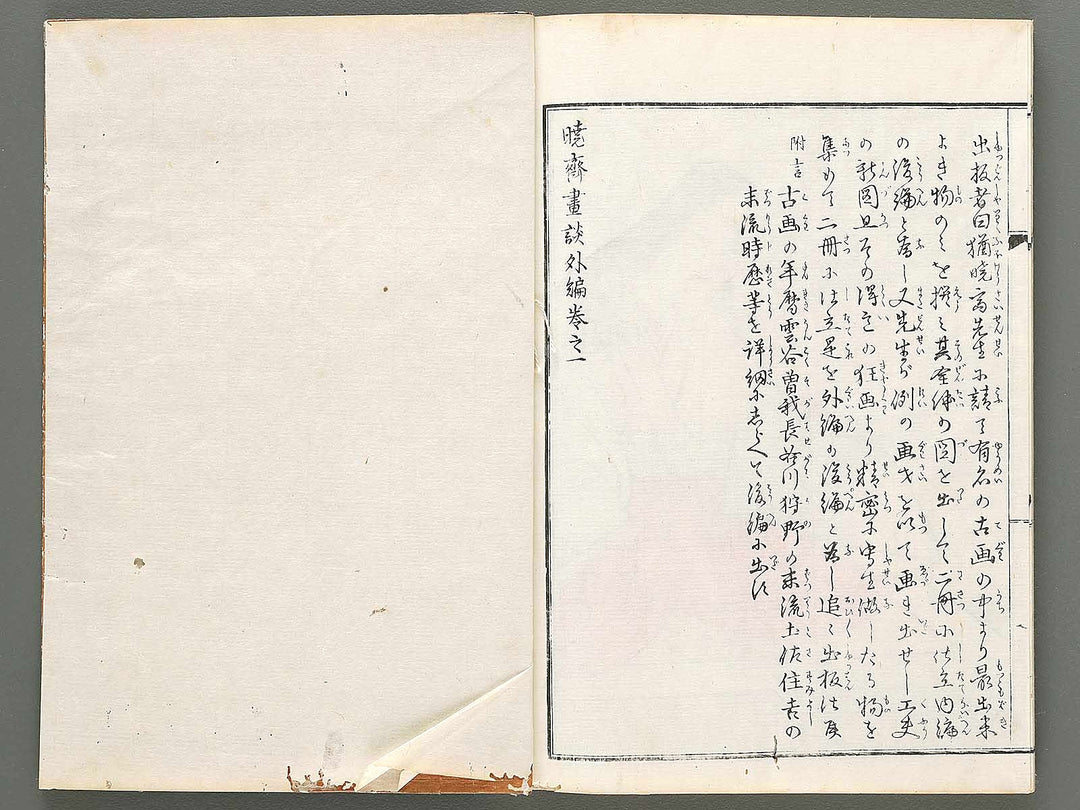 出板者曰猶暁斎先生に請て有名の古画の中より最出来
よき物のみを撰み其全体の図を出して二冊に仕立内編
の後編と為し又先生が例の画才を以て画き出せし工夫
の新図且その得意の狂画より精密に写生做したる物を
集めて二冊に仕立是を外編の後編と為し追々出板仕候
附言 古画の年暦雲谷曽我長谷川狩野の末流土佐住吉の
末流時歴等を詳細にしらべて後編に出す
暁齋畫談外編巻之一